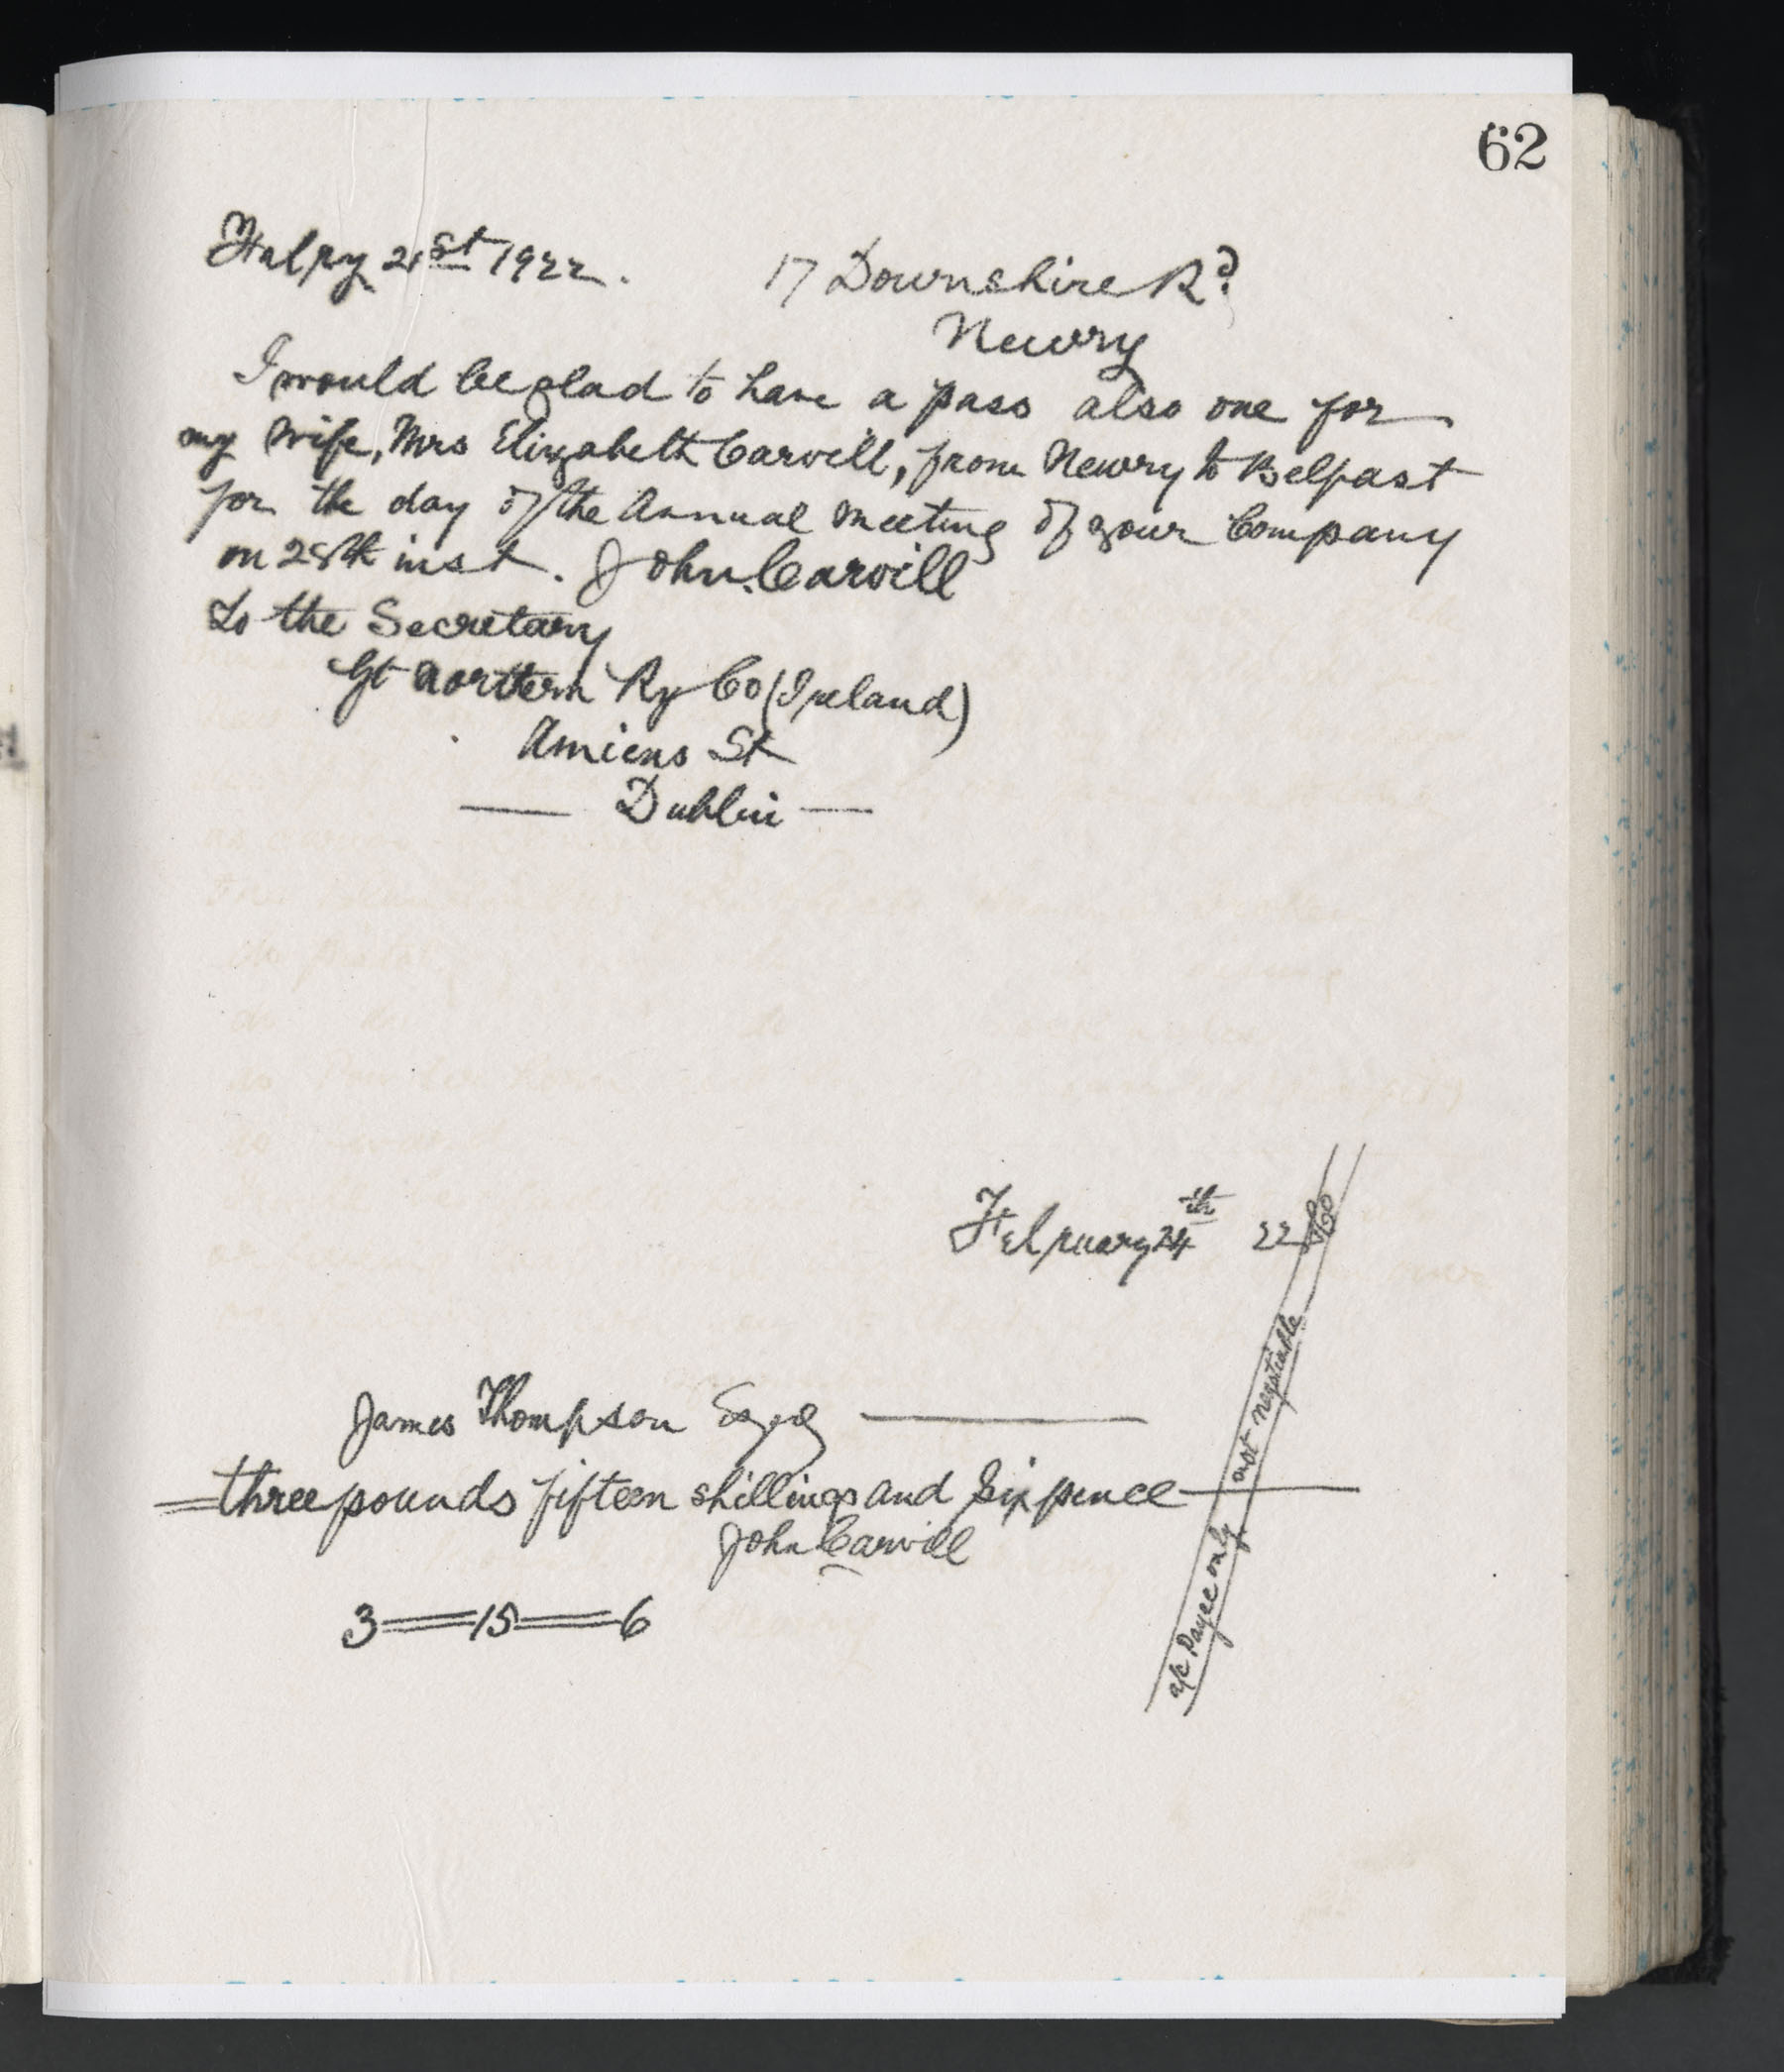 62
Febry 21st 1922. 17 Downshire Rd
Newry
I would be glad to have a pass also one for
my wife, Mrs Elizabeth Carvill, from Newry to Belfast
for the day of the Annual Meeting of your Company
on 28th inst. John Carvill
to the Secretary
Gt Northern Ry Co (Ireland)
Amiens St
— Dublin —
February 24th 22
James Thompson Esqre
three pounds fifteen shillings and Sixpence
John Carvill
3 = 15 = 6
a/c Payee only not negotiable &Co